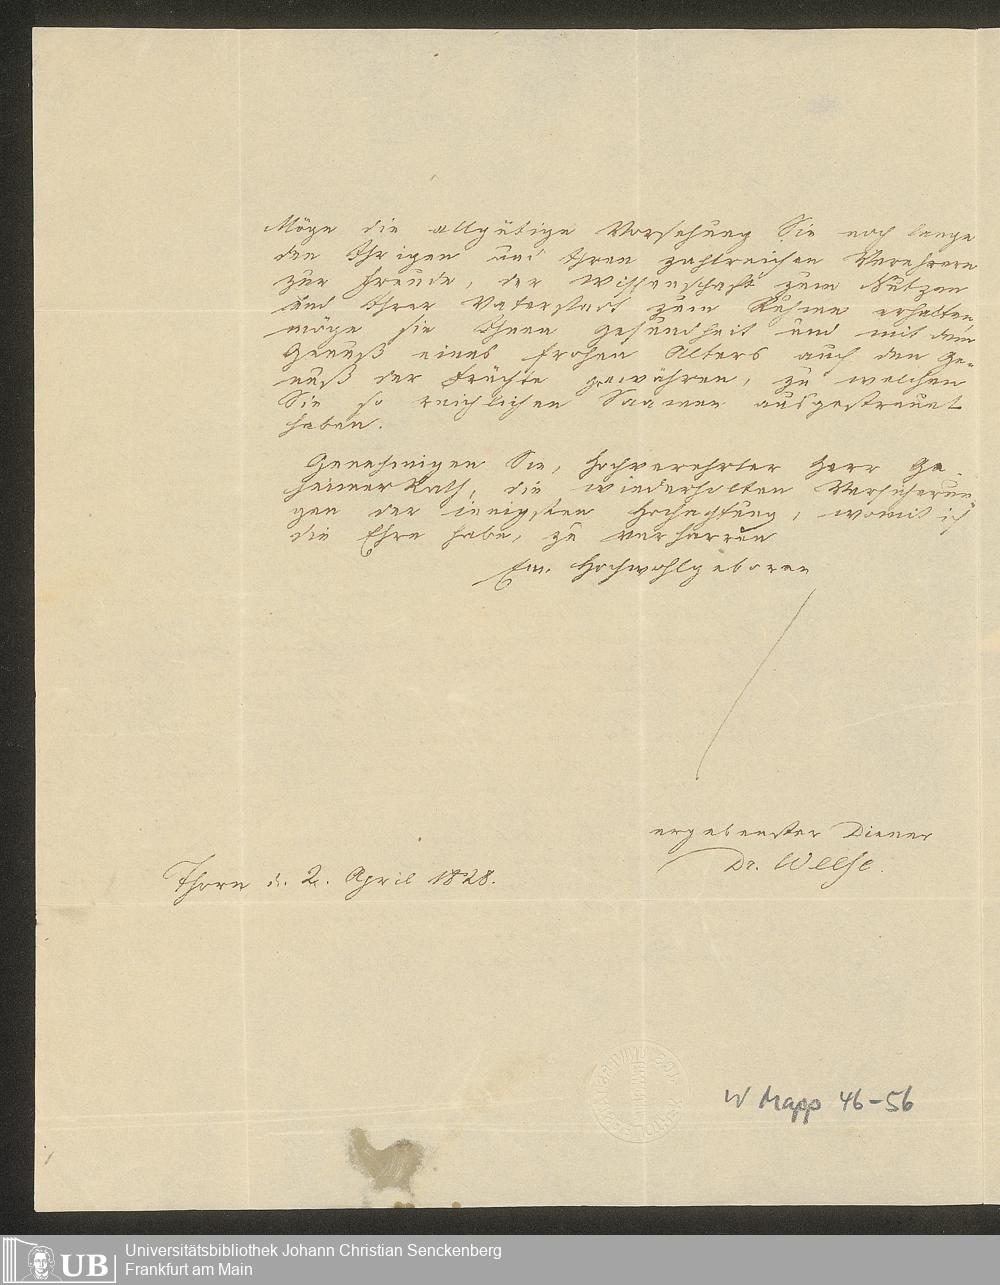 Möge die allgütige Vorsehung Sie noch lange
den Ihrigen und Ihren zahlreichen Verehrern
zur Freude, der Wissenschaft zum Nutzen
und Ihrer Vaterstadt zum Ruhme erhalten
möge sie Ihnen Gesundheit und mit dem
Genuß eines frohen Alters auch den Ge-
nuß der Früchte gewähren, zu welchen
Sie so reichlichen Saamen ausgestreuet
haben.
Genehmigen Sie, Hochverehrter Herr Ge-
heimer Rath, die wiederholten Versicherun-
gen der innigsten Hochachtung, womit ich
die Ehre habe, zu verharren
Ew. Hochwohlgeboren
ergebenster Diener
Dr. Weese.
Thorn d. 2. April 1828.
W Mapp 46-56
UB
Universitätsbibliothek Johann Christian Senckenberg
Frankfurt am Main